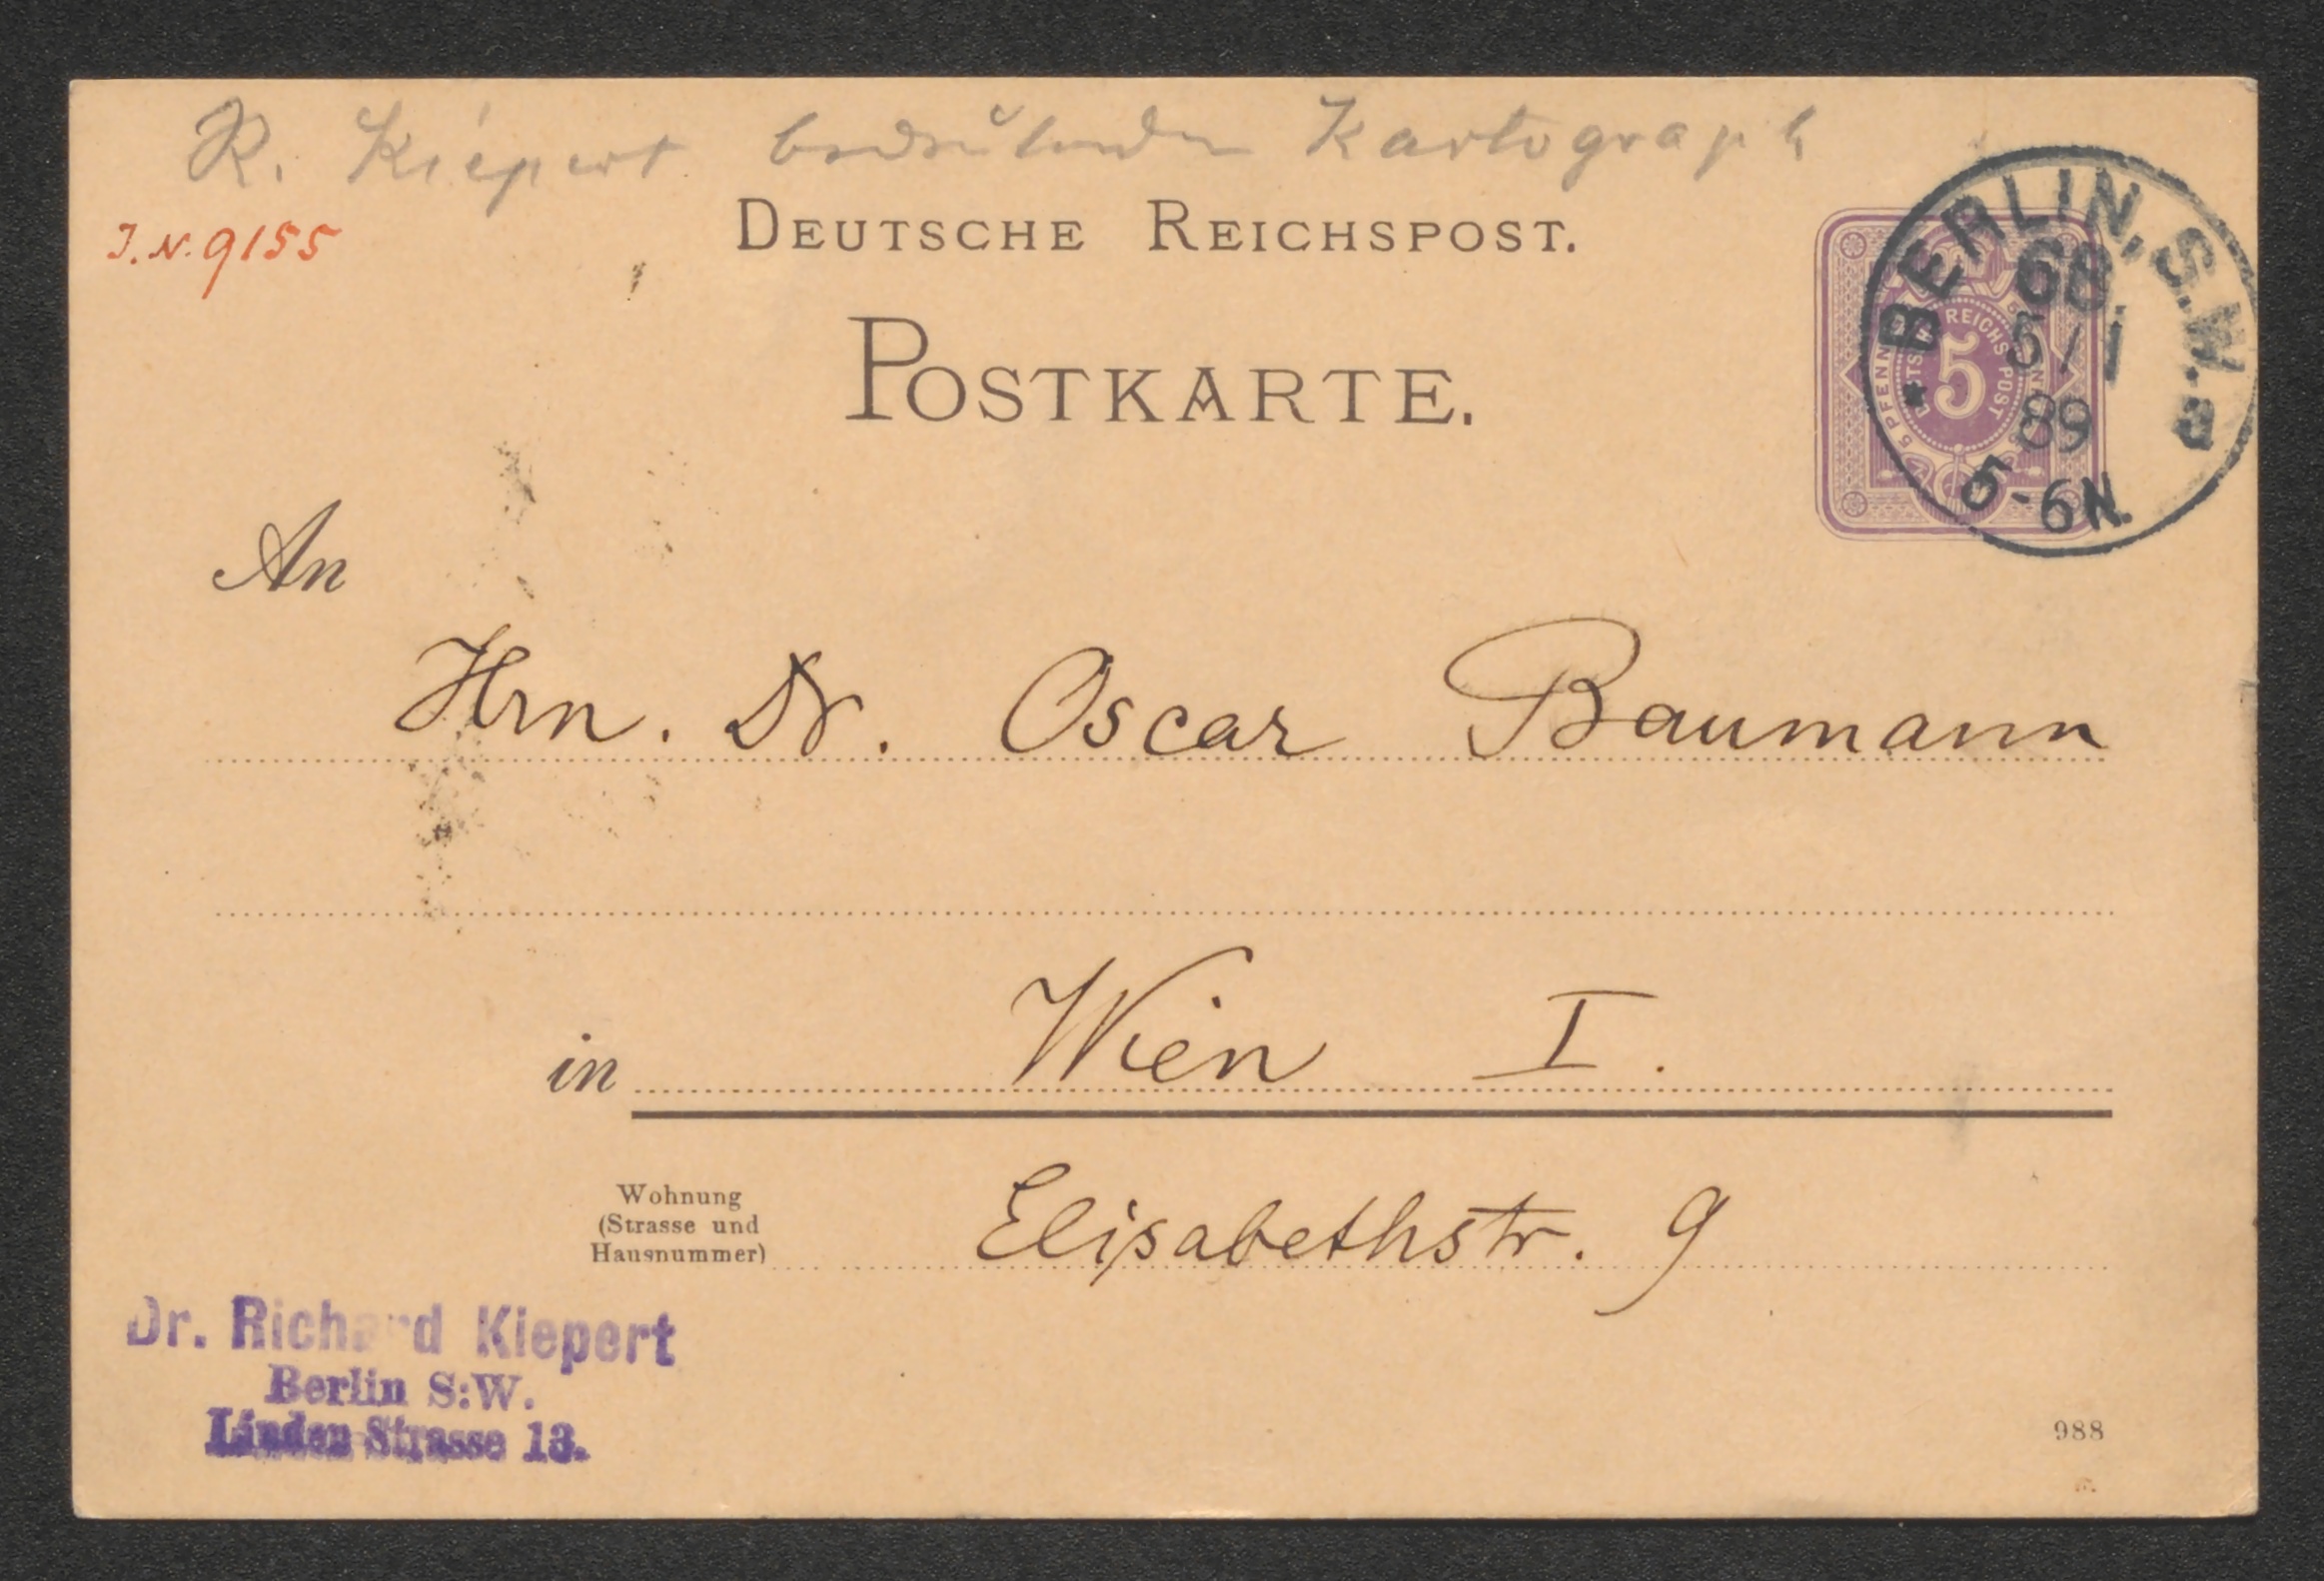 R. Kiepert bedeutender Kartograph
J.N. 9155
DEUTSCHE REICHSPOST.
POSTKARTE.
BERLIN, S.W. a
68.
5/1
89
5-6N.
5 PFENNIG
REICHSPOST
5
An
Hrn. Dr. Oscar Baumann
in Wien I.
Wohnung
(Strasse und
Hausnummer)
Elisabethstr. 9
Dr. Richard Kiepert
Berlin S:W.
Linden Strasse 13.
988